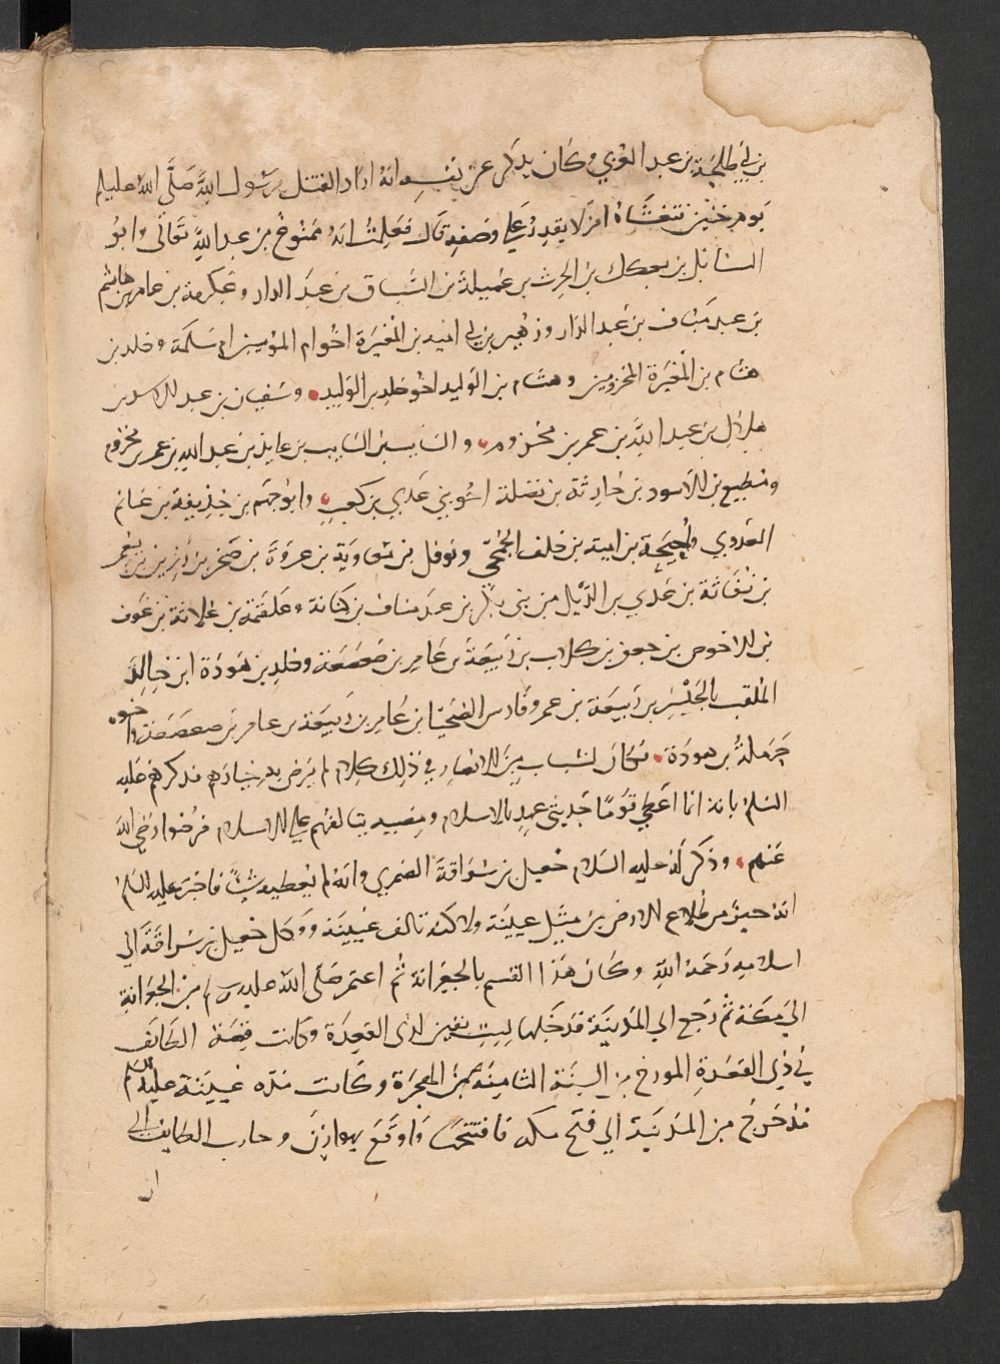 بن ابي طلحة بن عبد العزي وكان يذكر عن نفسه انه اراد الفتك برسول الله صلى الله عليه
يوم حنين فتغشاه امر لا يقدر علي وصفه قال فعلمت انه ممنوع من عبد الله تعالى وابو
السنابل بن بعكك بن الحرث بن عميلة بن السباق بن عبد الدار وعكرمة بن عامر بن هاشم
بن عبد مناف بن عبد الدار وزهير بن ابي امية بن المغيرة اخو ام المؤمنين ام سلمة وخلد بن
هشام بن المغيرة المخزومين وهشام بن الوليد اخو خلد بن الوليد وسفيان بن عبد الاسد بن
هلال بن عبد الله بن عمر بن مخزوم والسايب بن السايب بن عايذ بن عبد الله بن عمر بن مخزوم
ومطيع بن الاسود بن حارثة بن نضلة اخو بني عدي بن كعب وابو جهم بن حذيفة بن غانم
العدوي واحيحة بن امية بن خلف الجمحي ونوفل بن معاوية بن عروة بن صخر بن رزين بن يعمر
بن نفاثة بن عدي بن الديل من بني بكر بن عبد مناف بن كنانة وعلقمة بن علاثة بن عوف
بن الاخوص بن جعفر بن كلاب بن ربيعة بن عامر بن صعصعة وخلد بن هوذة ابن خالد
الملقب بالحليس بن ربيعة بن عمرو فارس الضحيا بن عامر بن ربيعة بن عامر بن صعصعة واخوه
حرملة بن هوذة فكان لشباب من الانصار في ذلك كلام لم يرض به خيارهم فذكرهم عليه
السلم بانه انما اعطى قوما حديثي عهد بالاسلام ومصيبة يتالفهم علي الاسلام فرضوا رضي الله
عنهم وذكر له عليه السلام جعيل بن سراقة الضمري وانه لم يعطيه شيا فاخبر عليه السلم
انه خير من طلاع الارض من مثل عيينة ولاكنه تالف عيينة ووكل جعيل بن سراقة الى
اسلامه رحمة الله وكان هذا القسم بالجعرانة ثم اعتمر صلى الله عليه وسلم من الجعرانة
الي مكة ثم رجع الي المدينة فدخلها لست بقين لذي القعدة وكانت قصة الطايف
في ذي القعدة المورخ من السنة الثامنة من الهجرة وكانت مدة غيبته عليه السلم
منذ خرج من المدينة الي فتح مكه فافتتحها واوقع بهوازن وحارب الطايف الى
ان